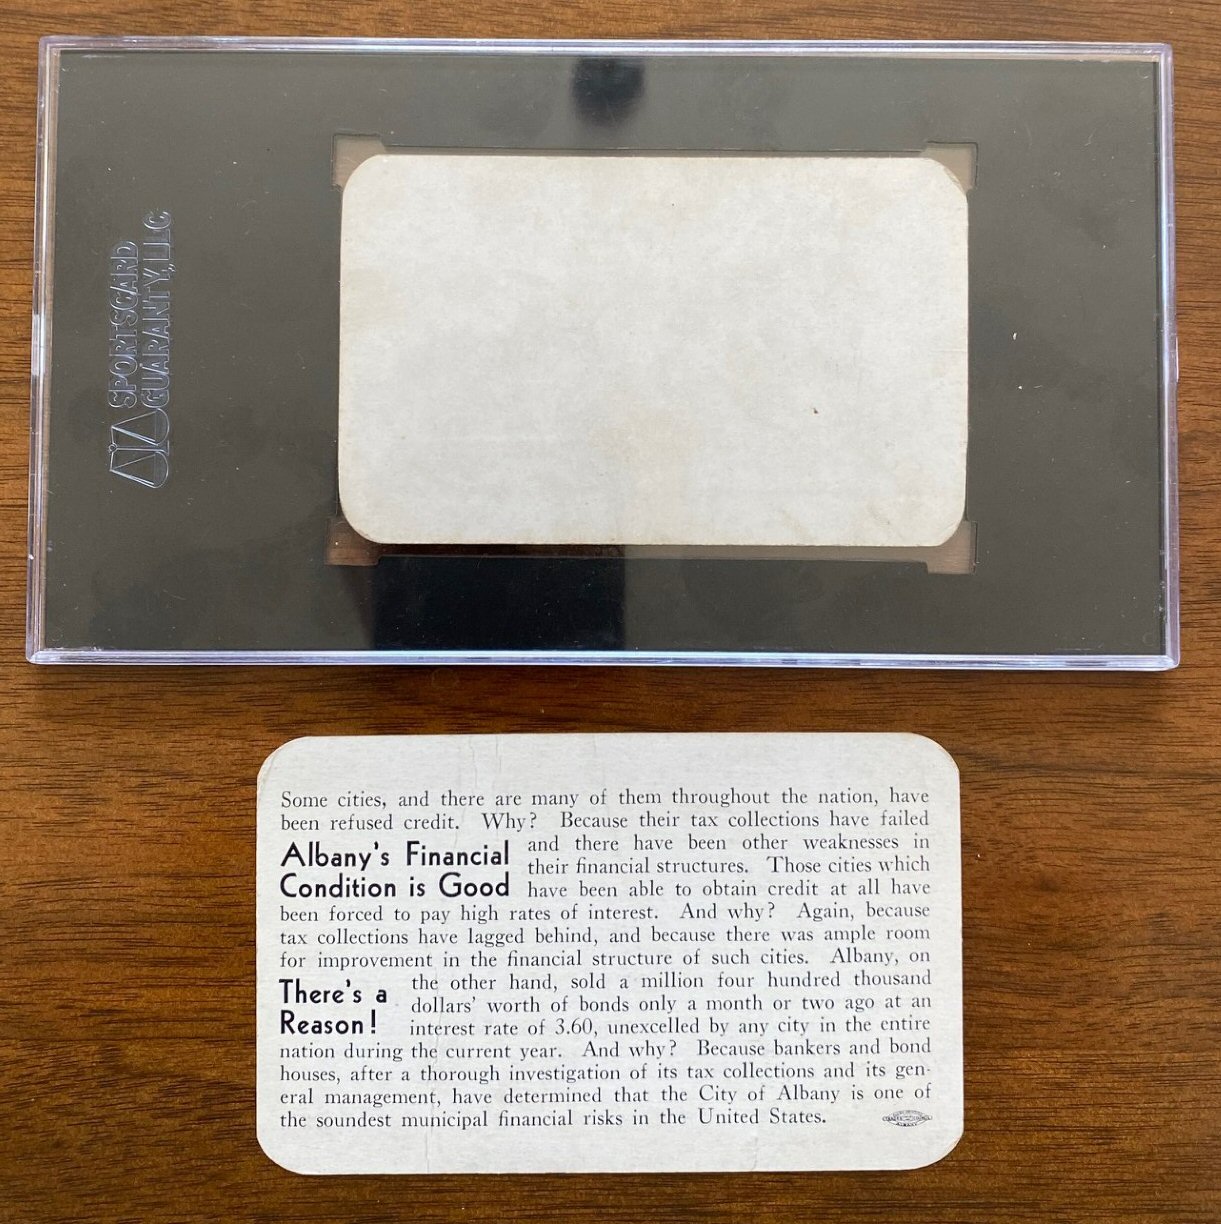 SPORTSCARD
GUARANTY, LLC
Some cities, and there are many of them throughout the nation, have
been refused credit. Why? Because their tax collections have failed
and there have been other weaknesses in
Albany's Financial
their financial structures. Those cities which
Condition is Good
have been able to obtain credit at all have
been forced to pay high rates of interest. And why? Again, because
tax collections have lagged behind, and because there was ample room
for improvement in the financial structure of such cities. Albany, on
the other hand, sold a million four hundred thousand
There's a
dollars' worth of bonds only a month or two ago at an
Reason!
interest rate of 3.60, unexcelled by any city in the entire
nation during the current year. And why? Because bankers and bond
houses, after a thorough investigation of its tax collections and its gen-
eral management, have determined that the City of Albany is one of
the soundest municipal financial risks in the United States.